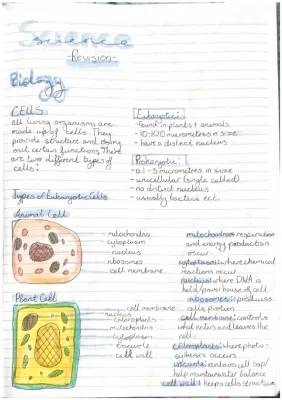 Science
science
-Revision-
Biology
CELLS
all living organisms are
made up of cells. They
provide structure and carry
out certain functions. There
are two different types of
cells:
Eukaryotic:
-found in plants + animals
-10-100 micrometres in size
-have a distinct nucleus
Prokaryotic:
-0.1-5 micrometres in size
-unicellular (single celled)
-no distinct nucleus
-usually bacteria ect.
Types of Eukaryotic Cells
Animal Cell
mitochondria
cytoplasm
nucleus
ribosomes
cell membrane
Plant Cell
cell membrane
nucleus
chloroplasts
mitochondria
cytoplasm
vacuole
cell wall
mitochondria: respiration
and energy production
occur
cytoplasm: where chemical
reactions occur
nucleus: where DNA is
held/powerhouse of cell
ribosomes: produces
cells protein
cell membrane: controls
what enters and leaves the
cell
chloroplasts: where photo-
synthesis occurs
vacuole: contains cell sap/
help maintain water balance
cell wall: keeps cells structure